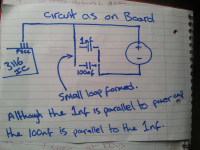 Circuit as on Board
1nf
Pvcc
3116
IC
100nf
Small loop formed.
Although the 1nf is parallel to power and
the 100nf is parallel to the 1nf.